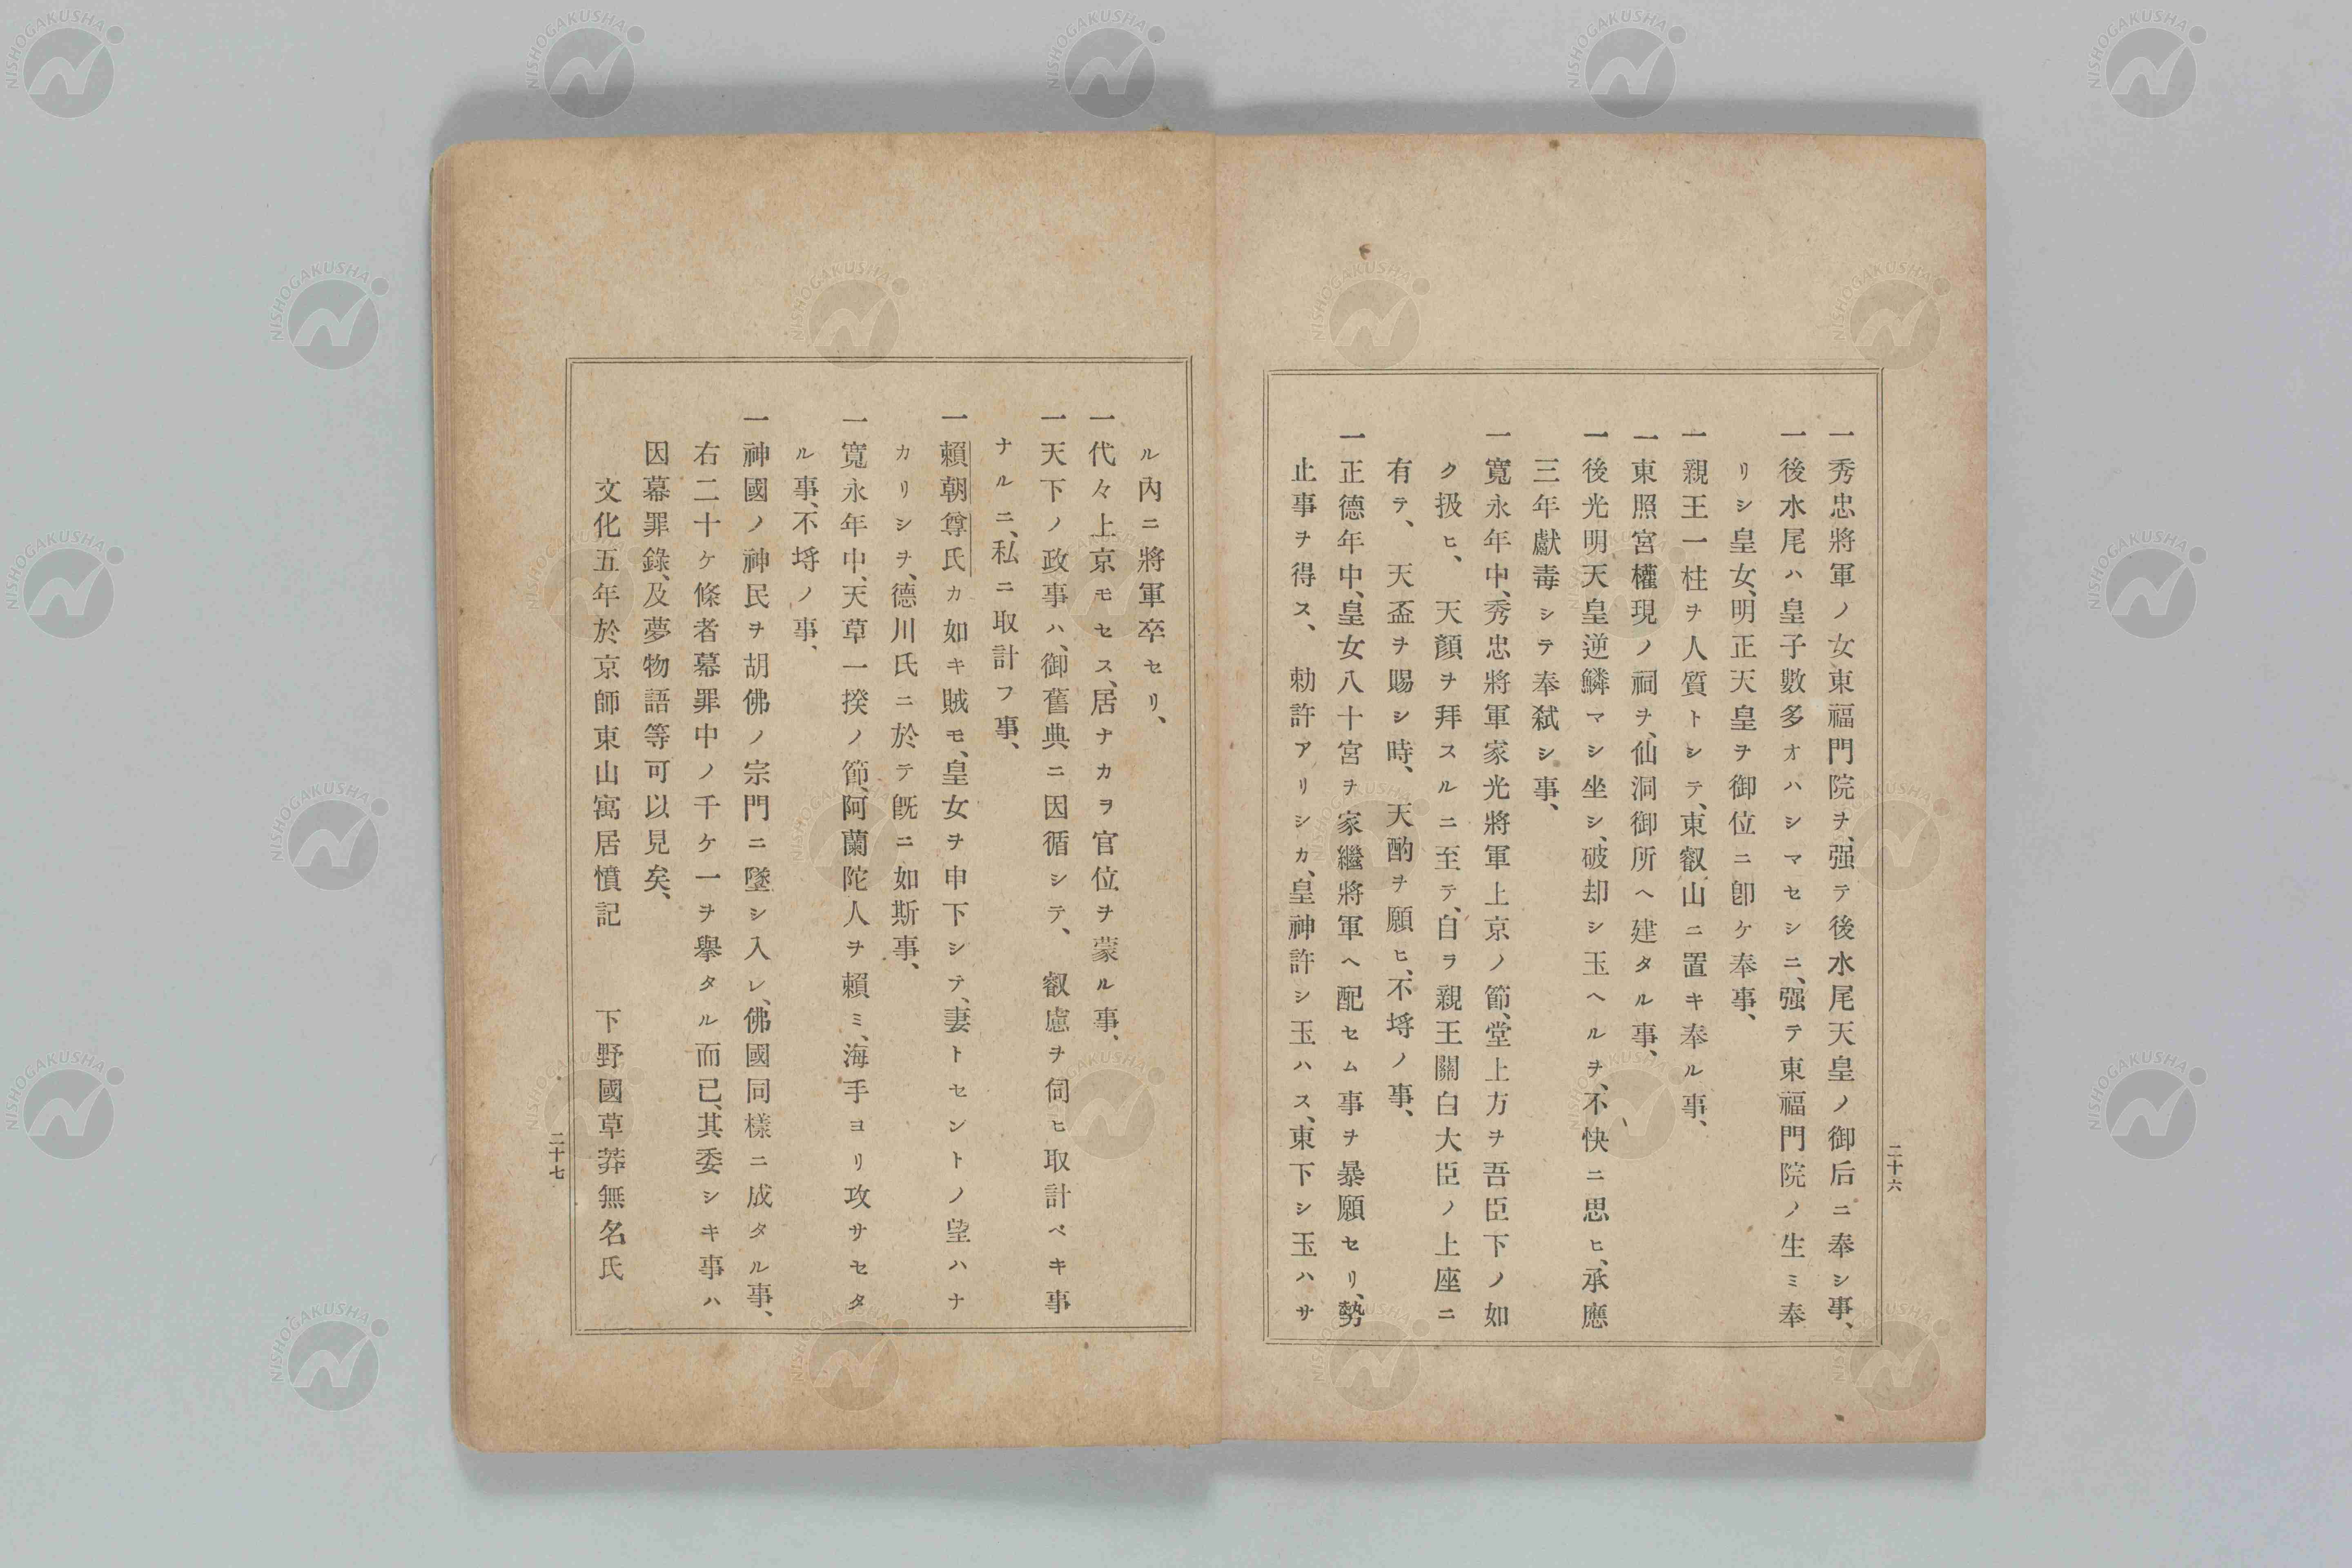 一秀忠將軍ノ女東福門院ヲ、强テ後水尾天皇ノ御后ニ奉シ事、
一後水尾ハ皇子數多オハシマセシニ、强テ東福門院ノ生ミ奉
リシ皇女、明正天皇ヲ御位ニ卽ケ奉事、
一親王一柱ヲ人質トシテ、東叡山ニ置キ奉ル事、
一東照宮權現ノ祠ヲ、仙洞御所ヘ建タル事、
一後光明天皇逆鱗マシ坐シ、破却シ玉ヘルヲ、不快ニ思ヒ、承應
三年獻毒シテ奉弑シ事、
一寬永年中、秀忠將軍家光將軍上京ノ節、堂上方ヲ吾臣下ノ如
ク扱ヒ、天顏ヲ拜スルニ至テ、自ラ親王關白大臣ノ上座ニ
有テ、天盃ヲ賜シ時、天酌ヲ願ヒ、不埓ノ事、
一正德年中、皇女八十宮ヲ家繼將軍ヘ配セム事ヲ暴願セリ、勢
止事ヲ得ス、勅許アリシカ、皇神許シ玉ハス、東下シ玉ハサ
二十六
ル內ニ將軍卒セリ、
一代々上京モセス、居ナカヲ官位ヲ蒙ル事、
一天下ノ政事ハ、御舊典ニ因循シテ、叡慮ヲ伺ヒ取計ベキ事
ナルニ、私ニ取計フ事、
一賴朝尊氏カ如キ賊モ、皇女ヲ申下シテ、妻トセントノ望ハナ
カリシヲ、德川氏ニ於テ旣ニ如斯事、
一寬永年中、天草一揆ノ節、阿蘭陀人ヲ賴ミ、海手ヨリ攻サセタ
ル事、不埓ノ事、
一神國ノ神民ヲ胡佛ノ宗門ニ墜シ入レ、佛國同樣ニ成タル事、
右二十ケ條者幕罪中ノ千ケ一ヲ擧タル而已、其委シキ事ハ
因幕罪錄、及夢物語等可以見矣、
文化五年於京師東山寓居憤記　下野國草莽無名氏
二十七
NISHOGAKUSHA